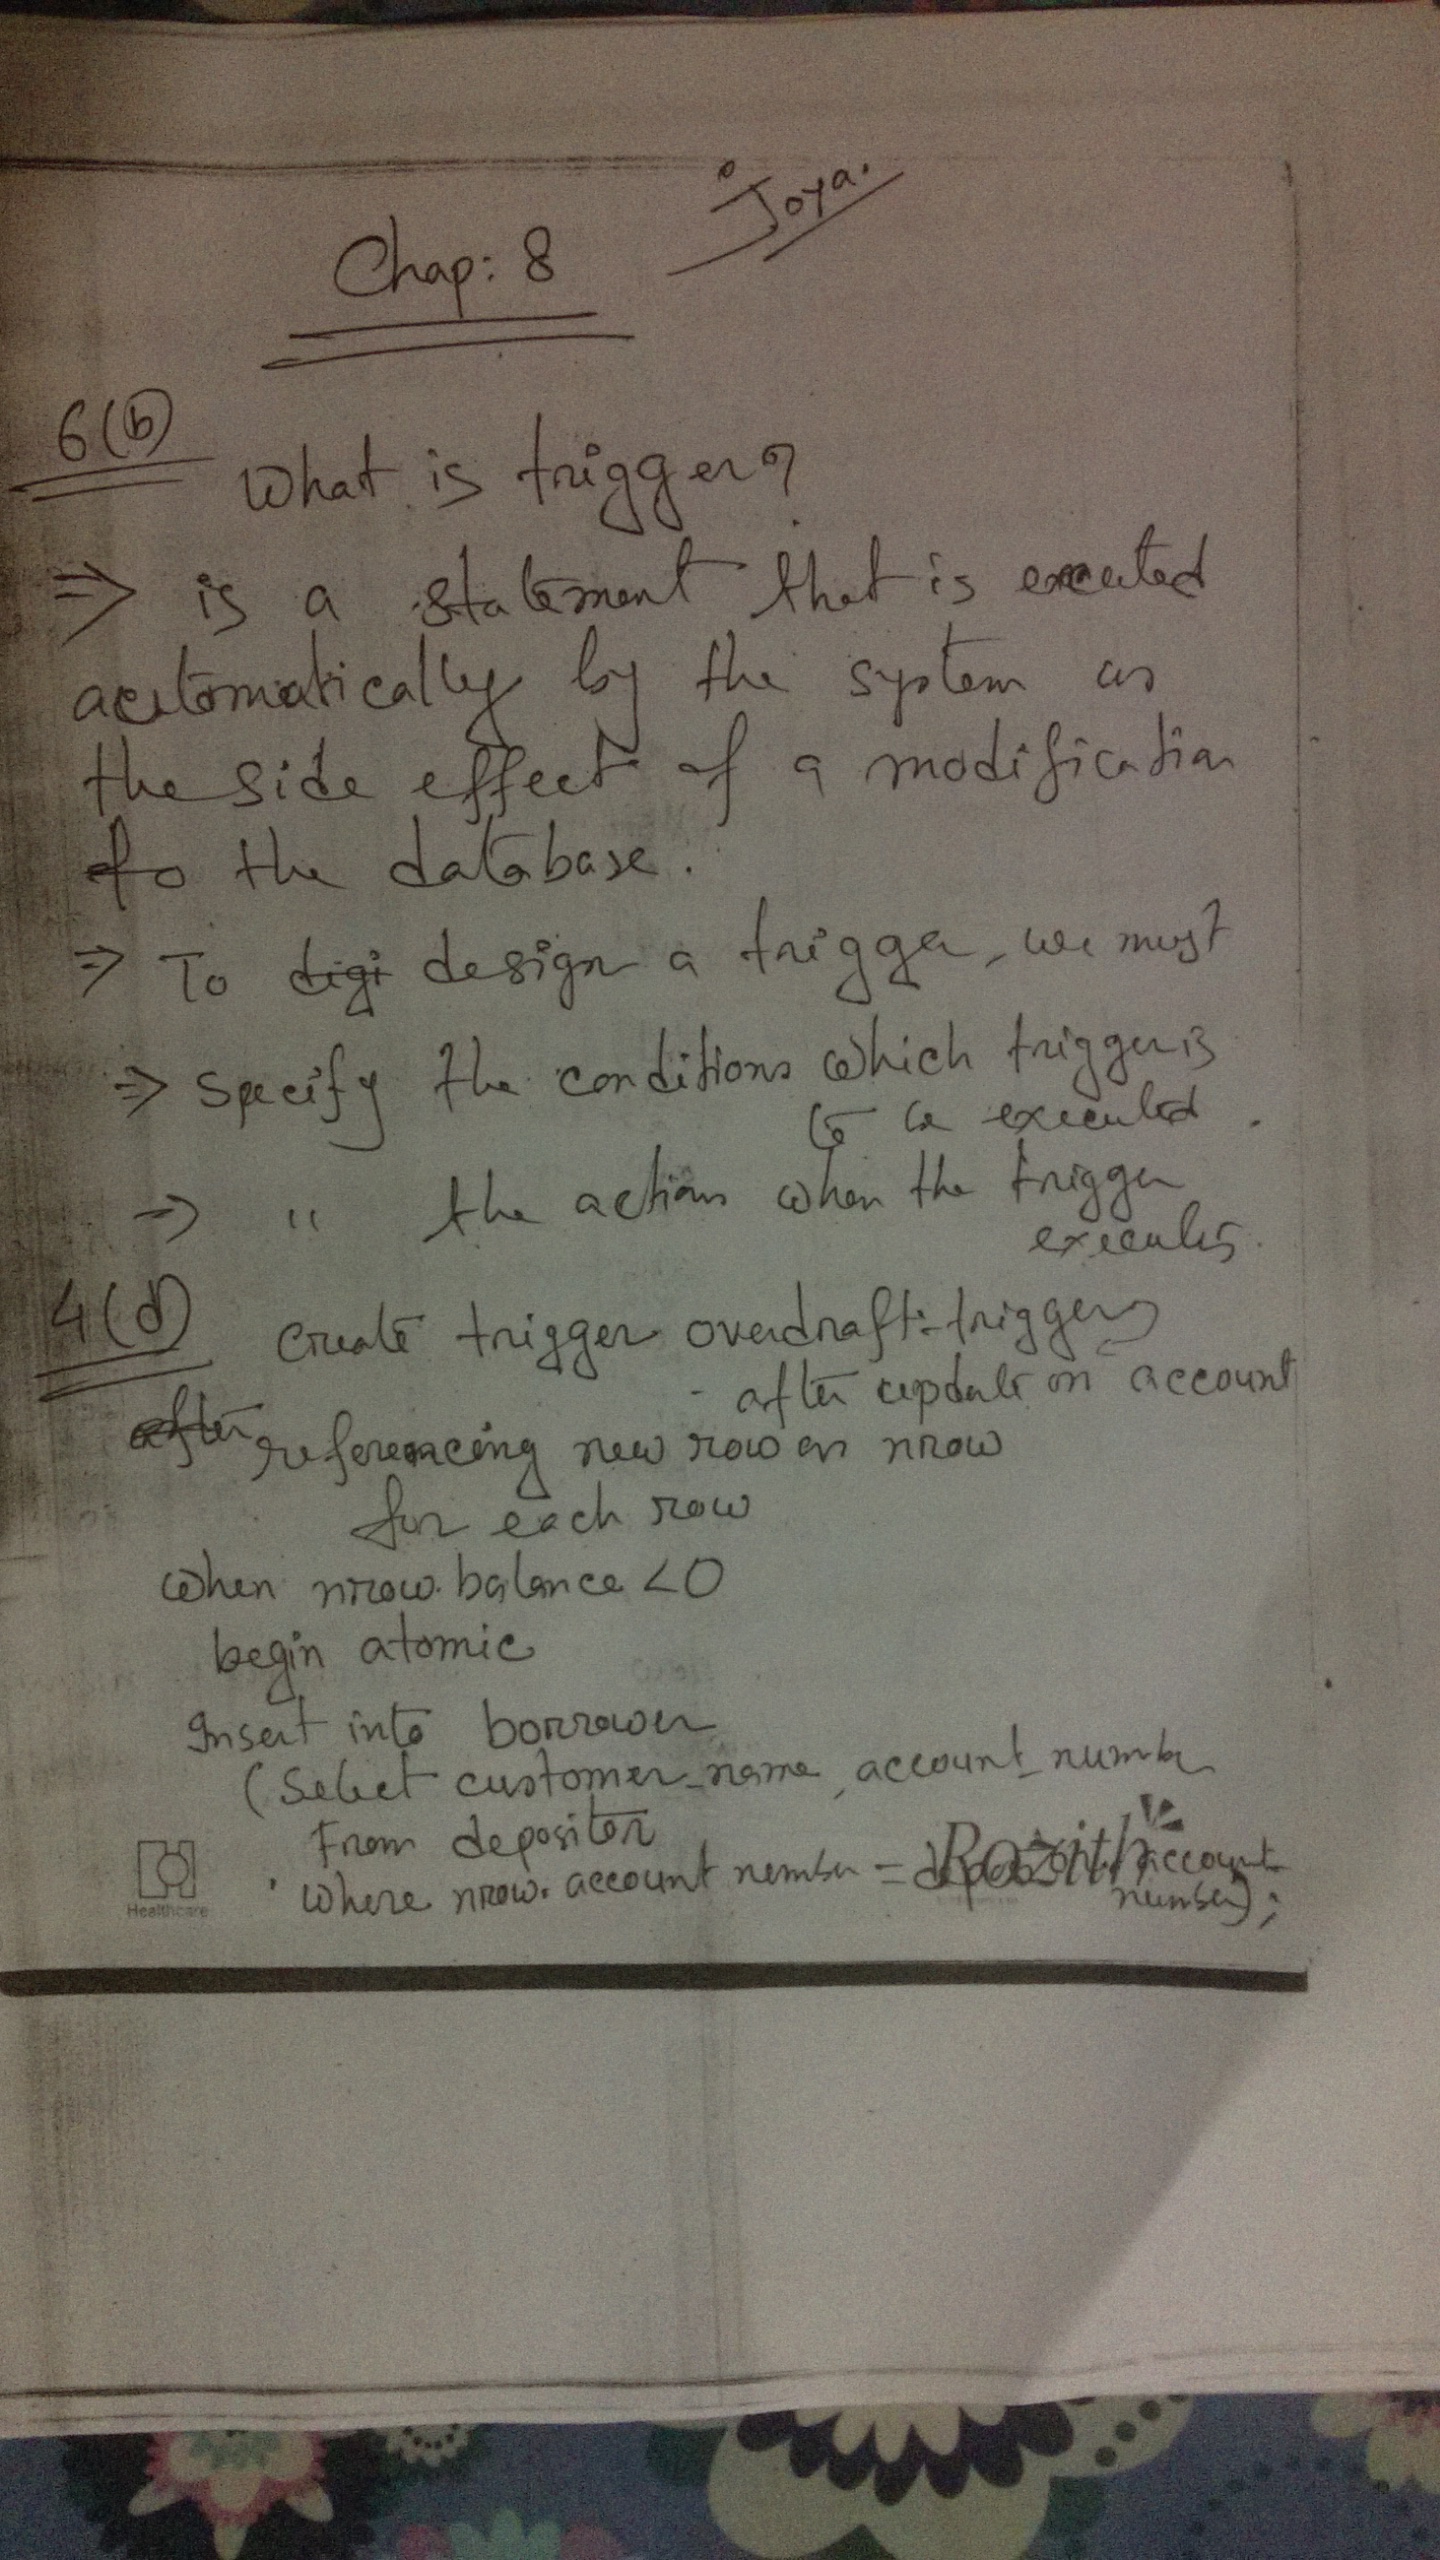 Joya.
Chap: 8
6(b)
What is trigger?
⇒ is a statement that is executed
automatically by the system as
the side effect of a modification
to the database.
⇒ To digi design a trigger, we must
⇒ Specify the conditions which trigger is
to be executed.
⇒ " the actions when the trigger
executes.
4(d)
Create trigger overdraft-trigger
after update on account
after referencing new row as nrow
for each row
When nrow.balance <0
begin atomic
Insert into borrower
(Select customer_name, account_number
From depositor
Where nrow.account number = account
number);
Rozith
Healthcare